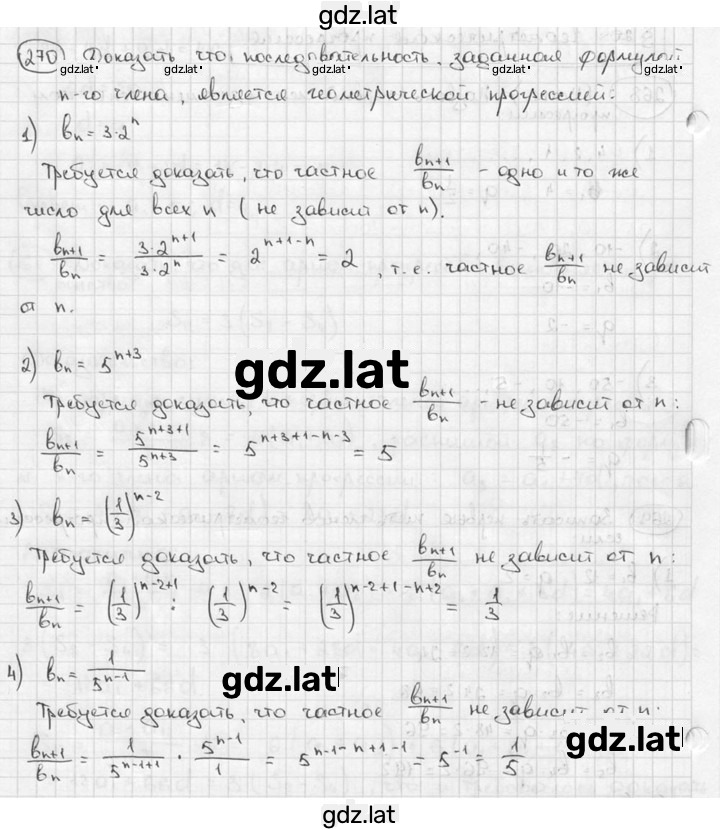 gdz.lat
270 Доказать что, последовательность, заданная формулой
gdz.lat gdz.lat gdz.lat gdz.lat gdz.lat
n-го члена, является геометрической прогрессией:
1) bₙ = 3·2ⁿ
Требуется доказать, что частное bₙ₊₁/bₙ - одно и то же
число для всех n (не зависит от n).
bₙ₊₁/bₙ = 3·2ⁿ⁺¹/3·2ⁿ = 2ⁿ⁺¹⁻ⁿ = 2, т.е. частное bₙ₊₁/bₙ не зависит
от n.
2) bₙ = 5ⁿ⁺³
gdz.lat
Требуется доказать, что частное bₙ₊₁/bₙ - не зависит от n:
bₙ₊₁/bₙ = 5ⁿ⁺³⁺¹/5ⁿ⁺³ = 5ⁿ⁺³⁺¹⁻ⁿ⁻³ = 5
3) bₙ = (1/3)ⁿ⁻²
Требуется доказать, что частное bₙ₊₁/bₙ не зависит от n:
bₙ₊₁/bₙ = (1/3)ⁿ⁻²⁺¹ : (1/3)ⁿ⁻² = (1/3)ⁿ⁻²⁺¹⁻ⁿ⁺² = 1/3
4) bₙ = 1/5ⁿ⁻¹
gdz.lat
Требуется доказать, что частное bₙ₊₁/bₙ не зависит от n:
gdz.lat
bₙ₊₁/bₙ = 1/5ⁿ⁻¹⁺¹ · 5ⁿ⁻¹/1 = 5ⁿ⁻¹⁻ⁿ⁺¹⁻¹ = 5⁻¹ = 1/5
gdz.lat